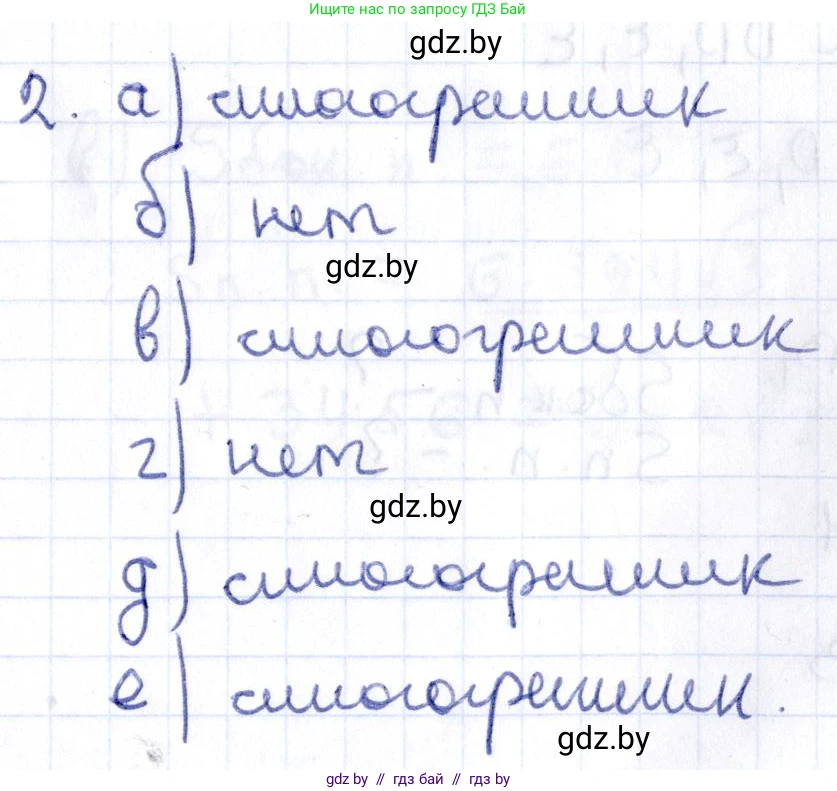 Ищите нас по запросу ГДЗ Бай
gdz.by
2. а) многогранник
б) нет
gdz.by
в) многогранник
г) нет
gdz.by
д) многогранник
е) многогранник.
gdz.by
gdz by // гдз бай // gdz by